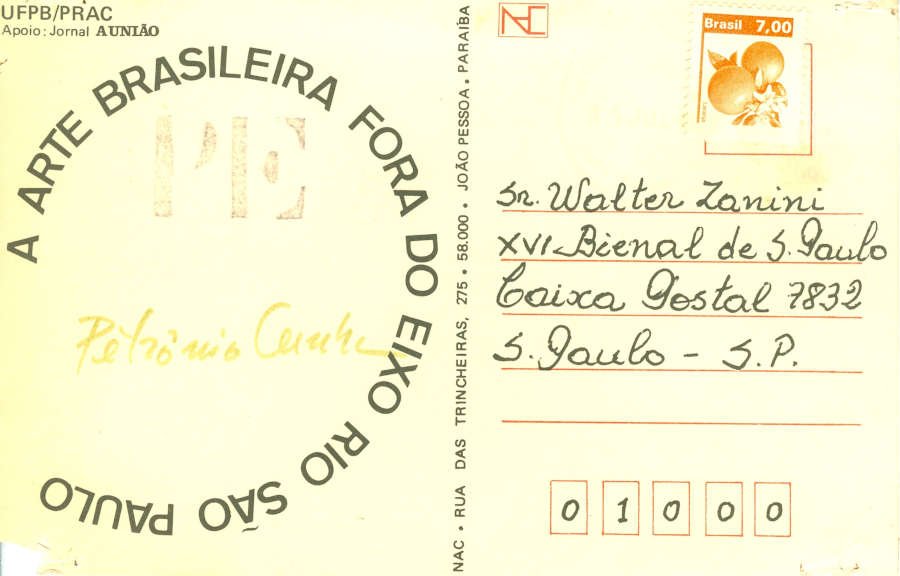 UFPB/PRAC
Apoio: Jornal A UNIÃO
A ARTE BRASILEIRA FORA DO EIXO RIO SÃO PAULO
PE
Petrônio Cunha
NAC • RUA DAS TRINCHEIRAS, 275 • 58.000 • JOÃO PESSOA • PARAÍBA
NAC
Brasil 7,00
Sr. Walter Zanini
XVI-Bienal de S. Paulo
Caixa Postal 7832
S. Paulo - S.P.
0 1 0 0 0